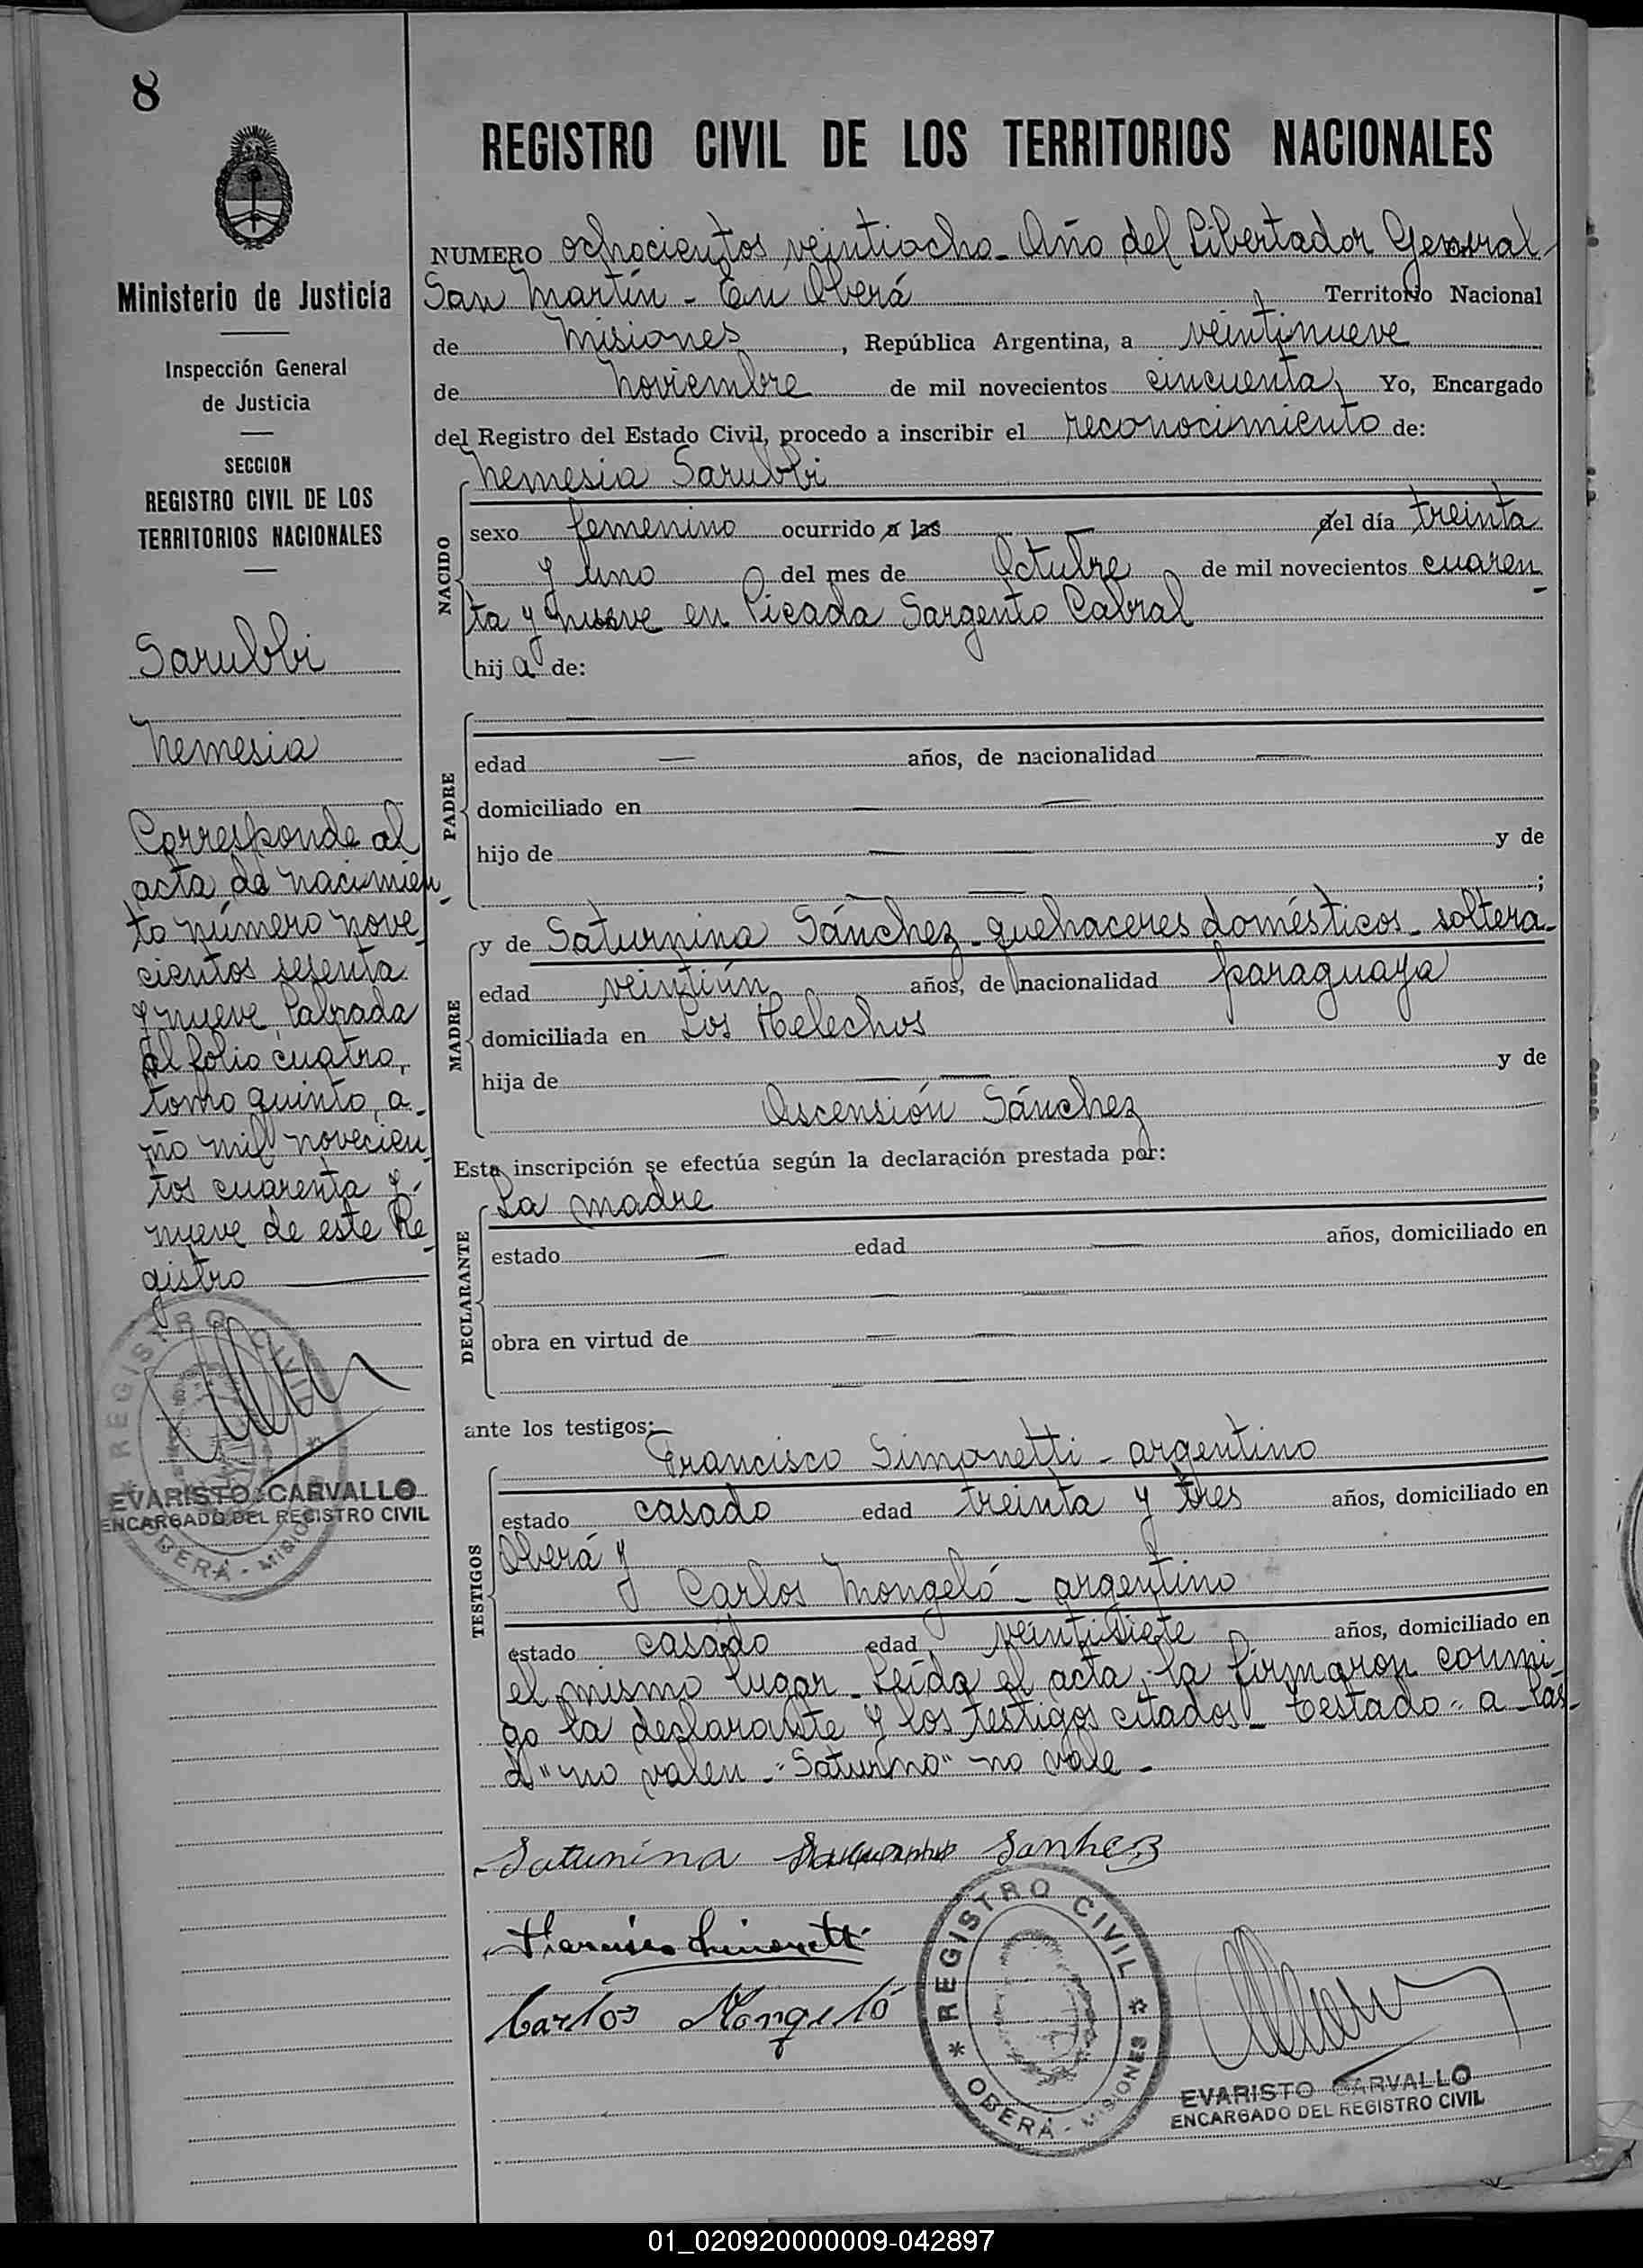 8
Ministerio de Justicia
Inspección General
de Justicia
SECCION
REGISTRO CIVIL DE LOS
TERRITORIOS NACIONALES
Sarubbi
Nemesia
Corresponde al
acta de nacimien
to número nove
cientos sesenta
y nueve, labrada
al folio cuatro,
tomo quinto, a
ño mil novecien
tos cuarenta y
nueve de este Re
gistro
REGISTRO CIVIL
OBERÁ - MISIONES
EVARISTO CARVALLO
ENCARGADO DEL REGISTRO CIVIL
REGISTRO CIVIL DE LOS TERRITORIOS NACIONALES
NUMERO ochocientos veintiocho - Año del Libertador General
San Martín - En Oberá Territorio Nacional
de Misiones, República Argentina, a veintinueve
de Noviembre de mil novecientos cincuenta, Yo, Encargado
del Registro del Estado Civil, procedo a inscribir el reconocimiento de:
NACIDO
Nemesia Sarubbi
sexo femenino ocurrido a las — del día treinta
y uno del mes de Octubre de mil novecientos cuaren
ta y nueve en Picada Sargento Cabral
hij a de:
PADRE
—
edad — años, de nacionalidad —
domiciliado en — —
hijo de — — y de
— — ;
MADRE
y de Saturnina Sánchez - quehaceres domésticos - soltera -
edad veintiún años, de nacionalidad paraguaya
domiciliada en Los Helechos
hija de — — y de
Ascensión Sánchez
Esta inscripción se efectúa según la declaración prestada por:
DECLARANTE
La madre
estado — edad — años, domiciliado en
— —
obra en virtud de — —
— —
ante los testigos:
TESTIGOS
Francisco Simonetti - argentino
estado casado edad treinta y tres años, domiciliado en
Oberá y
Carlos Mongeló - argentino
estado casado edad veintisiete años, domiciliado en
el mismo lugar - Leída el acta, la firmaron conmi
go la declarante y los testigos citados - Testado "a las -
d" no valen - "Saturno" no vale -
Saturnina Sanhez
Francisco Simonetti
Carlos Mongeló
REGISTRO CIVIL
OBERÁ - MISIONES
EVARISTO CARVALLO
ENCARGADO DEL REGISTRO CIVIL
01_020920000009-042897